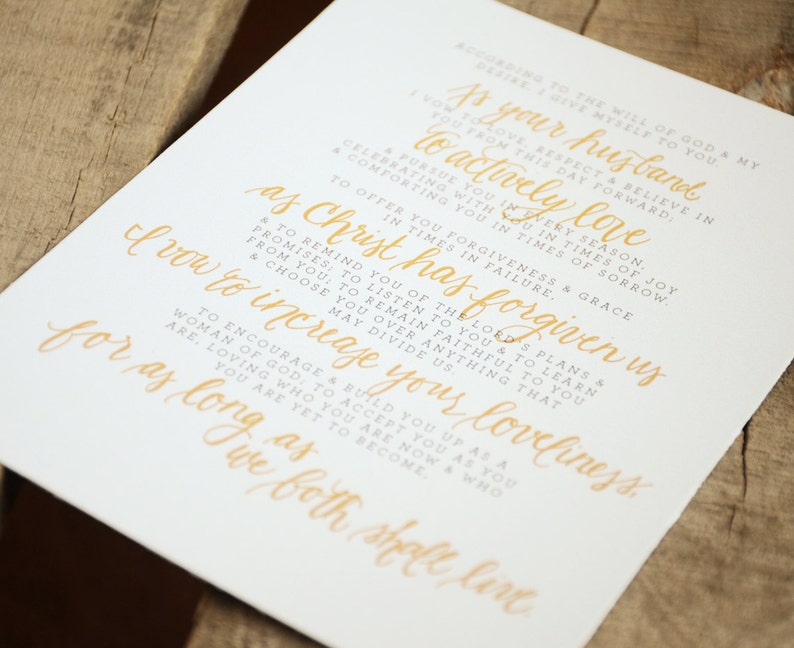 ACCORDING TO THE WILL OF GOD & MY
DESIRE, I GIVE MYSELF TO YOU.
As your husband
I VOW TO LOVE, RESPECT & BELIEVE IN
YOU FROM THIS DAY FORWARD;
to actively love
& PURSUE YOU IN EVERY SEASON,
CELEBRATING WITH YOU IN TIMES OF JOY
& COMFORTING YOU IN TIMES OF SORROW.
TO OFFER YOU FORGIVENESS & GRACE
IN TIMES IN FAILURE,
as Christ has forgiven us
& TO REMIND YOU OF THE LORD'S PLANS &
PROMISES; TO LISTEN TO YOU & TO LEARN
FROM YOU; TO REMAIN FAITHFUL TO YOU
& CHOOSE YOU OVER ANYTHING THAT
MAY DIVIDE US.
I vow to increase your loveliness,
TO ENCOURAGE & BUILD YOU UP AS A
WOMAN OF GOD; TO ACCEPT YOU AS YOU
ARE, LOVING WHO YOU ARE NOW & WHO
YOU ARE YET TO BECOME,
for as long as
we both shall live.